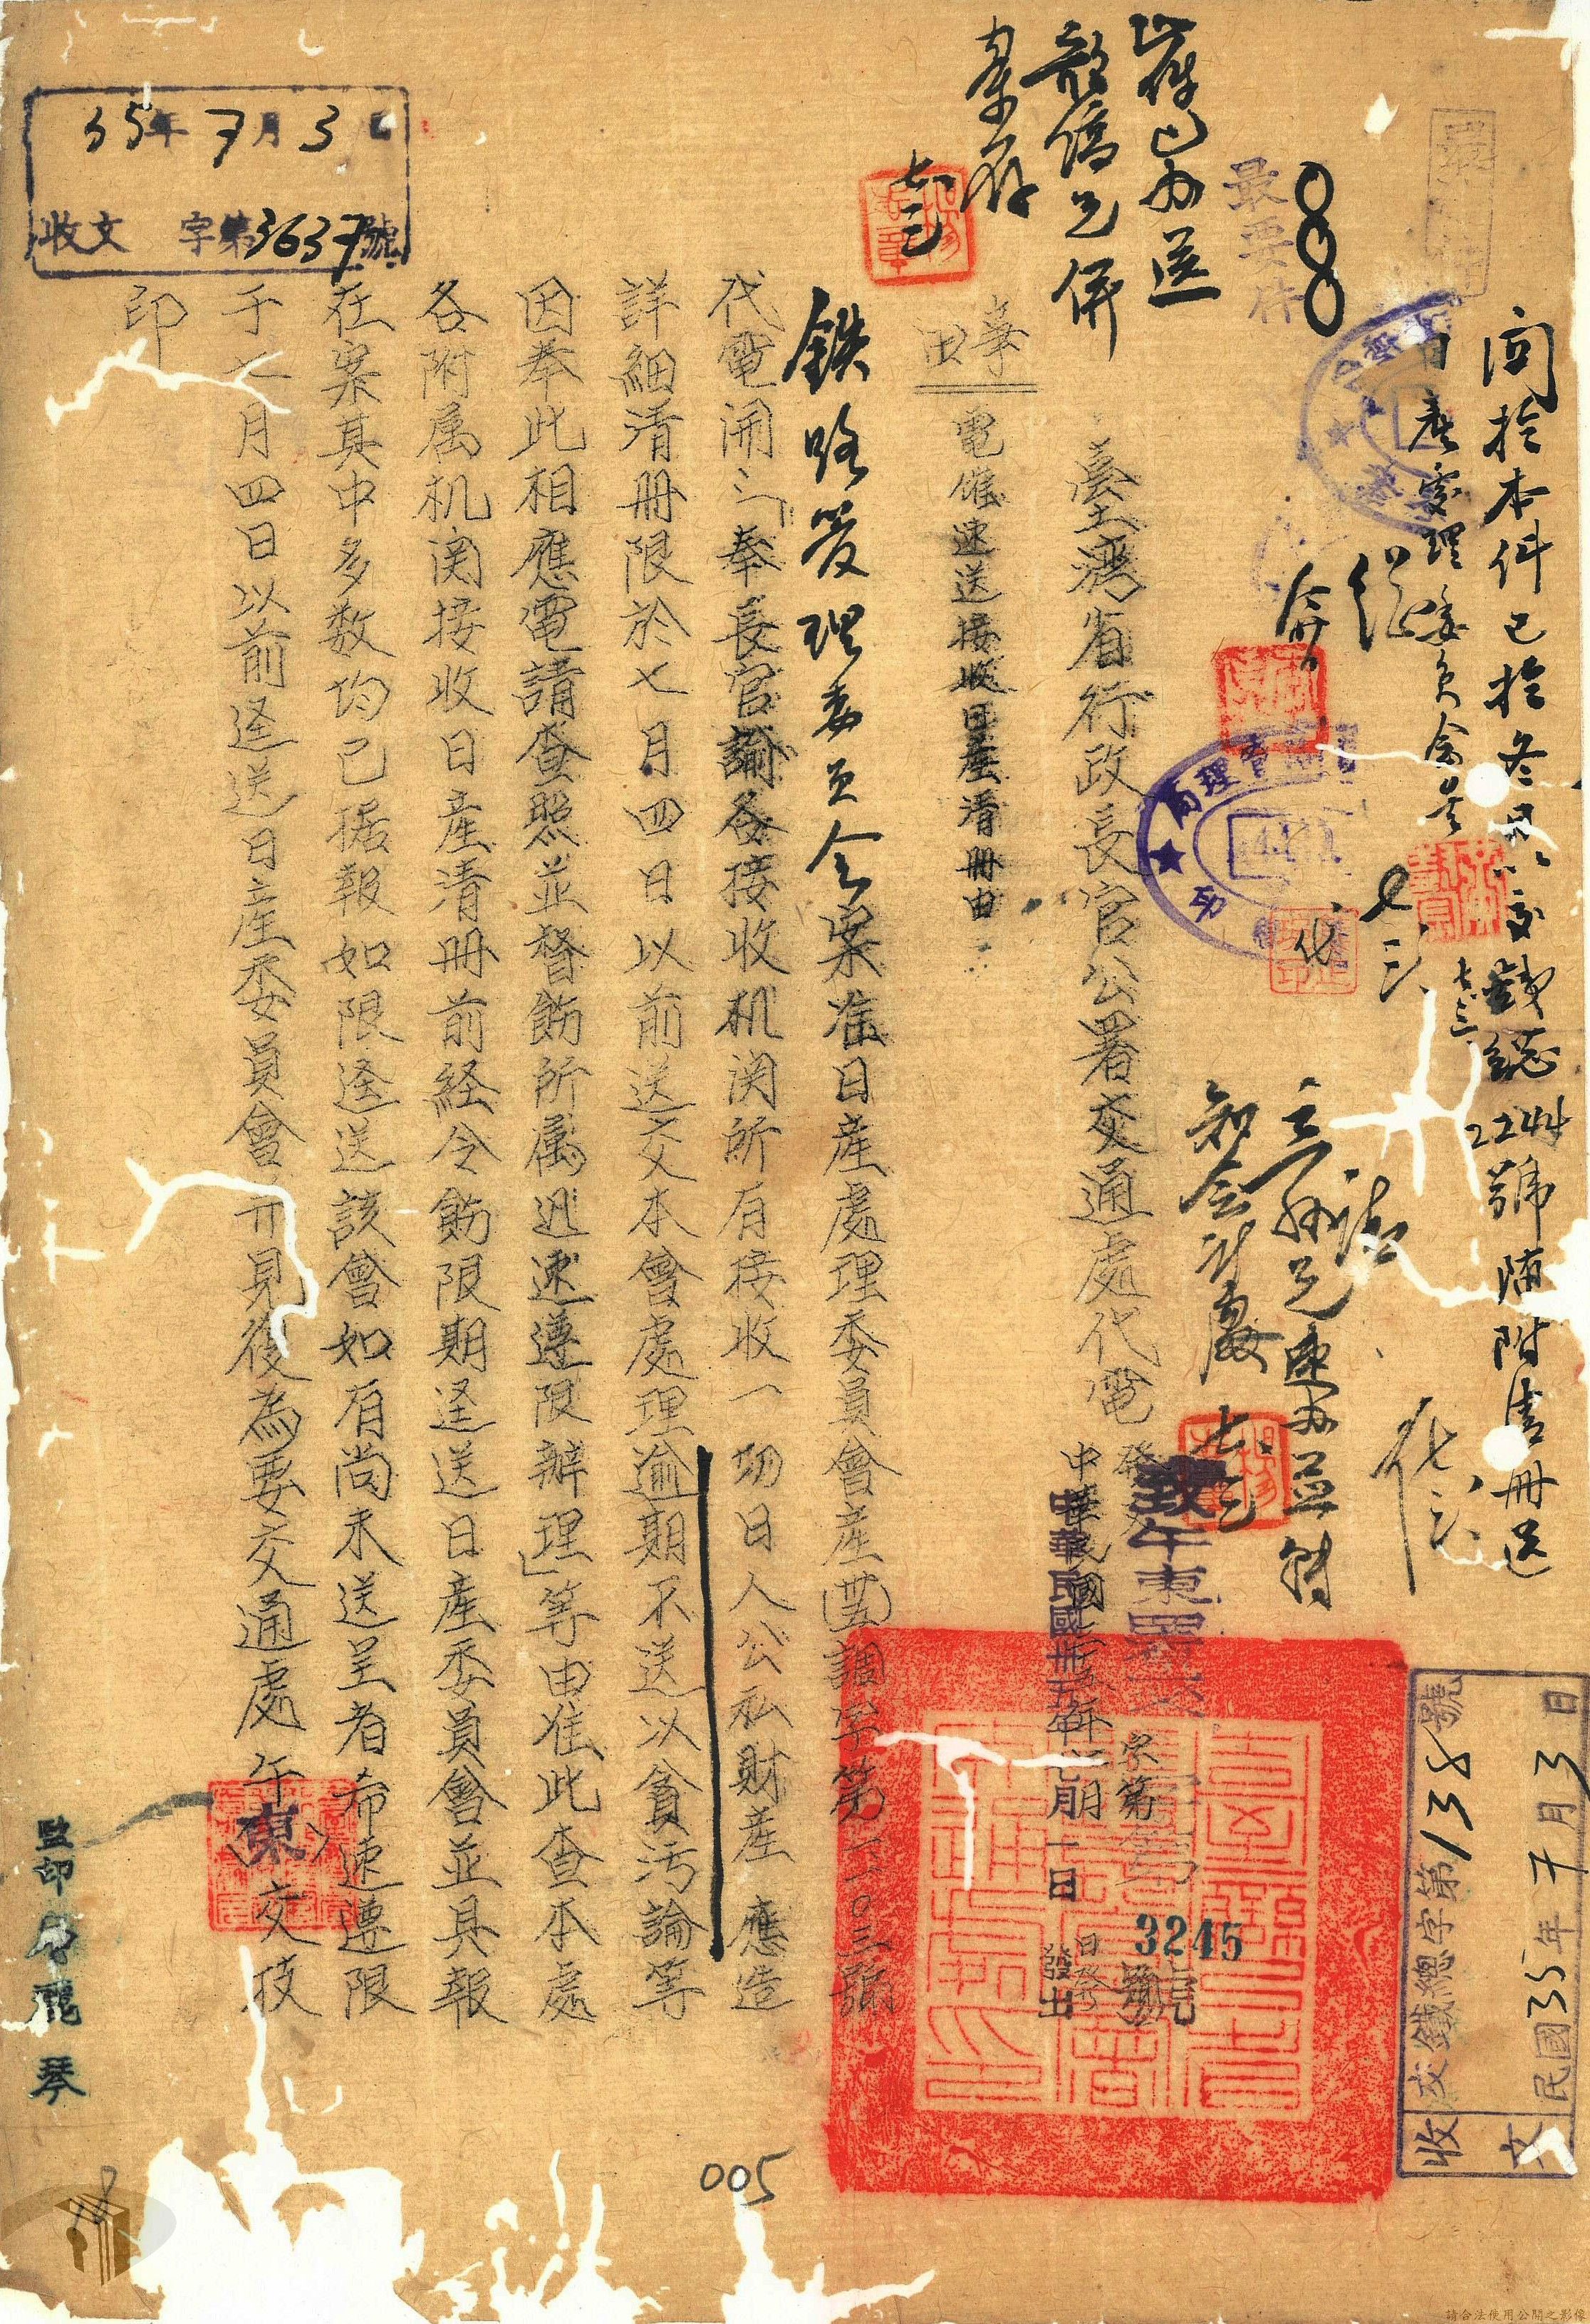 收文 民國35年7月3日
交鐵總字第1358號
最要件
臺灣省行政長官公署交通處代電
致午東署
字第3245號
中華民國卅五年七月一日發出
事由
電催速送接收日產清冊由
鉄路管理委員会案准日產處理委員會產(卅五)調字第一一〇三號
代電開:「奉長官諭各接收机関所有接收一切日人公私財產應造
詳細清冊限於七月四日以前送交本會處理逾期不送以貪污論等
因奉此相應電請查照並督飭所属迅速遵限辦理」等由准此查本處
各附属机関接收日產清冊前経令飭限期逕送日產委員會並具報
在案其中多数均已据報如限逕送該會如有尚未送呈者希速遵限
于七月四日以前逕送日產委員會并見復為要交通處午(東)交技
印
監印 麗琴
35年7月3日
收文 字第3637號
関於本件已於
2244號隨附清冊送
日產處理委員会
七.三
兄速办並轉
知会計處
七.三
此件已办送
兄併
案存
七.三
005
18
請合法使用公開之影像